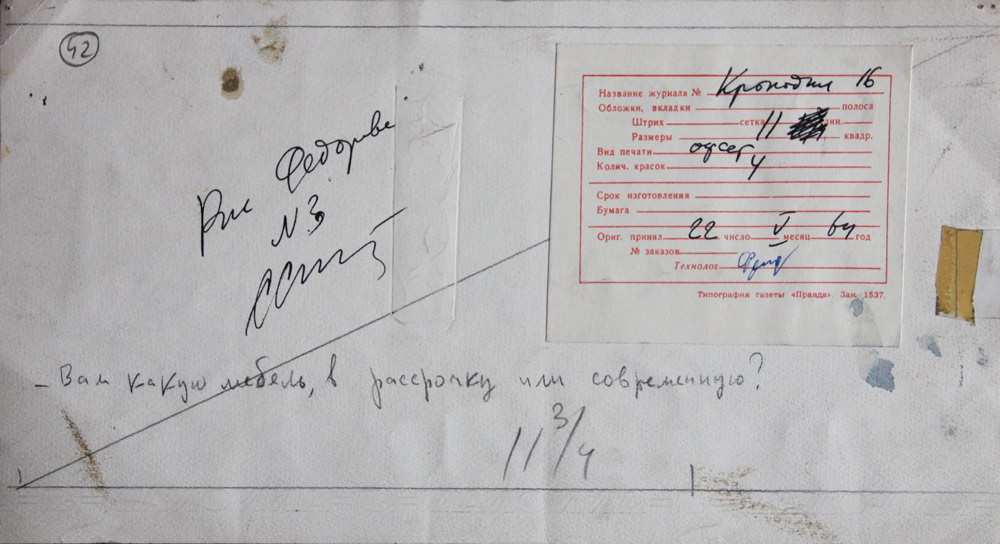 42
Рис Федорова
N 3
Название журнала № Крокодил 16
Обложки, вкладки полоса
Штрих сетка лин.
Размеры 11 квадр.
Вид печати офсет
Колич. красок 4
Срок изготовления
Бумага
Ориг. принял 22 число V месяц 64 год
№ заказов
Технолог
Типография газеты «Правда». Зак. 1537.
– Вам какую мебель, в рассрочку или современную?
11 3/4